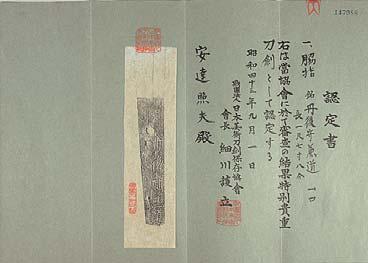 認定書
一、脇指 銘 丹後守兼道 一口
長一尺七寸八分
右は當協會に於て審査の結果特別貴重
刀劍として認定する
昭和四十三年九月一日
財團法人日本美術刀劍保存協會
會長 細川護立
安達照夫殿